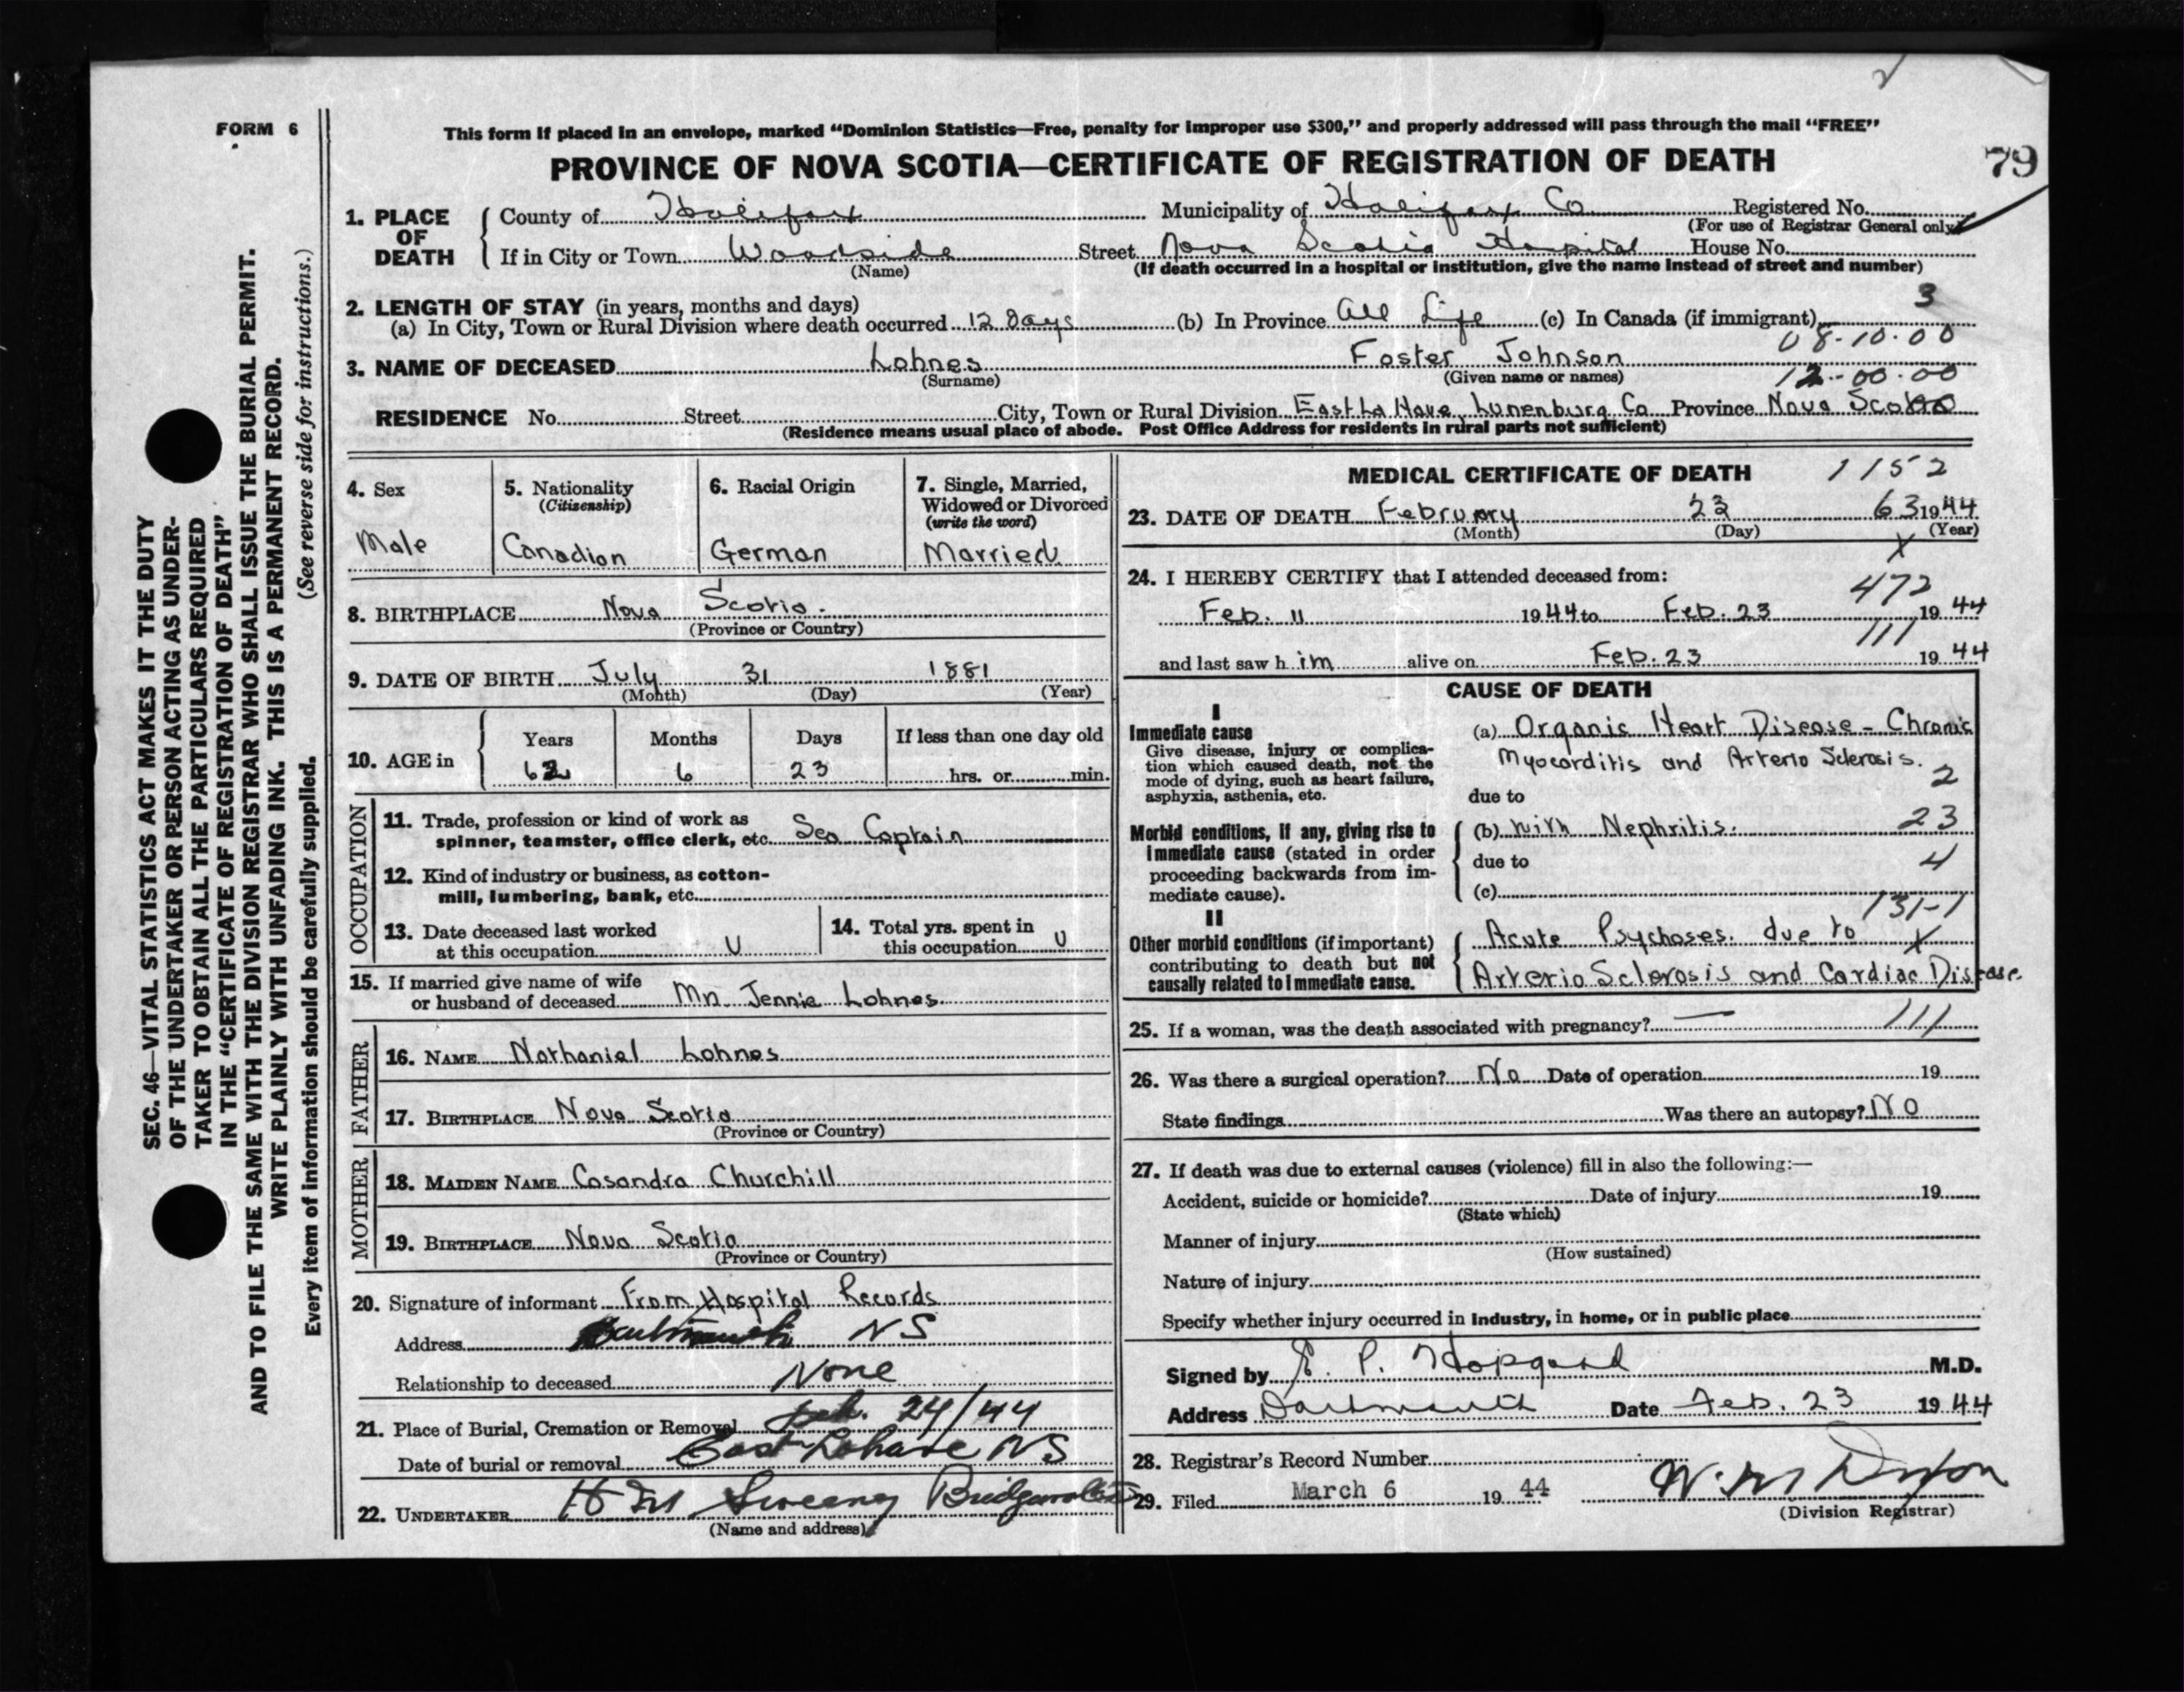 FORM 6
This form if placed in an envelope, marked “Dominion Statistics—Free, penalty for improper use $300,” and properly addressed will pass through the mail “FREE”
PROVINCE OF NOVA SCOTIA—CERTIFICATE OF REGISTRATION OF DEATH
79
SEC. 46—VITAL STATISTICS ACT MAKES IT THE DUTY
OF THE UNDERTAKER OR PERSON ACTING AS UNDER-
TAKER TO OBTAIN ALL THE PARTICULARS REQUIRED
IN THE “CERTIFICATE OF REGISTRATION OF DEATH”
AND TO FILE THE SAME WITH THE DIVISION REGISTRAR WHO SHALL ISSUE THE BURIAL PERMIT.
WRITE PLAINLY WITH UNFADING INK. THIS IS A PERMANENT RECORD.
Every item of information should be carefully supplied. (See reverse side for instructions.)
1. PLACE OF DEATH
County of Halifax Municipality of Halifax Co Registered No.
(For use of Registrar General only)
If in City or Town Woodside Street Nova Scotia Hospital House No.
(Name) (If death occurred in a hospital or institution, give the name instead of street and number)
2. LENGTH OF STAY (in years, months and days) 3
(a) In City, Town or Rural Division where death occurred 12 Days (b) In Province All Life (c) In Canada (if immigrant)
08-10-00
3. NAME OF DECEASED Lohnes Foster Johnson
(Surname) (Given name or names) 12-00-00
RESIDENCE No. Street City, Town or Rural Division East La Have, Lunenburg Co Province Nova Scotia
(Residence means usual place of abode. Post Office Address for residents in rural parts not sufficient)
4. Sex
Male
5. Nationality
(Citizenship)
Canadian
6. Racial Origin
German
7. Single, Married,
Widowed or Divorced
(write the word)
Married
8. BIRTHPLACE Nova Scotia.
(Province or Country)
9. DATE OF BIRTH July 31 1881
(Month) (Day) (Year)
10. AGE in
Years Months Days If less than one day old
62 6 23 hrs. or min.
OCCUPATION
11. Trade, profession or kind of work as
spinner, teamster, office clerk, etc. Sea Captain
12. Kind of industry or business, as cotton-
mill, lumbering, bank, etc.
13. Date deceased last worked
at this occupation U
14. Total yrs. spent in
this occupation U
15. If married give name of wife
or husband of deceased Mrs Jennie Lohnes
FATHER
16. NAME Nathaniel Lohnes
17. BIRTHPLACE Nova Scotia
(Province or Country)
MOTHER
18. MAIDEN NAME Casandra Churchill
19. BIRTHPLACE Nova Scotia
(Province or Country)
20. Signature of informant From Hospital Records
Address Dartmouth NS
Relationship to deceased None
21. Place of Burial, Cremation or Removal Feb. 24/44
Date of burial or removal East Lahave NS
22. UNDERTAKER Sweeney Bridgewater
(Name and address)
MEDICAL CERTIFICATE OF DEATH 1152
23. DATE OF DEATH February 23 63 1944
(Month) (Day) (Year)
X
24. I HEREBY CERTIFY that I attended deceased from:
472
Feb. 11 1944 to Feb. 23 1944
111
and last saw him alive on Feb. 23 1944
CAUSE OF DEATH
I
Immediate cause
Give disease, injury or complica-
tion which caused death, not the
mode of dying, such as heart failure,
asphyxia, asthenia, etc.
(a) Organic Heart Disease - Chronic
Myocarditis and Arterio Sclerosis.
2
due to
Morbid conditions, if any, giving rise to
immediate cause (stated in order
proceeding backwards from im-
mediate cause).
(b) with Nephritis. 23
due to 4
(c)
131-1
II
Other morbid conditions (if important)
contributing to death but not
causally related to immediate cause.
Acute Psychoses. due to X
Arterio Sclerosis and Cardiac Disease.
25. If a woman, was the death associated with pregnancy? — 111
26. Was there a surgical operation? No Date of operation 19
State findings Was there an autopsy? No
27. If death was due to external causes (violence) fill in also the following:—
Accident, suicide or homicide? Date of injury 19
(State which)
Manner of injury
(How sustained)
Nature of injury
Specify whether injury occurred in industry, in home, or in public place
Signed by E. P. Hopgood M.D.
Address Dartmouth Date Feb. 23 1944
28. Registrar's Record Number
29. Filed March 6 19 44
(Division Registrar)